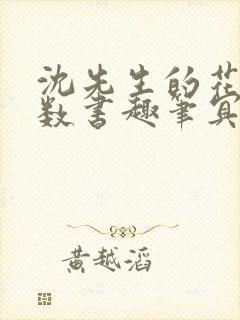 沈先生的花
数书趣笔真
黄越滔